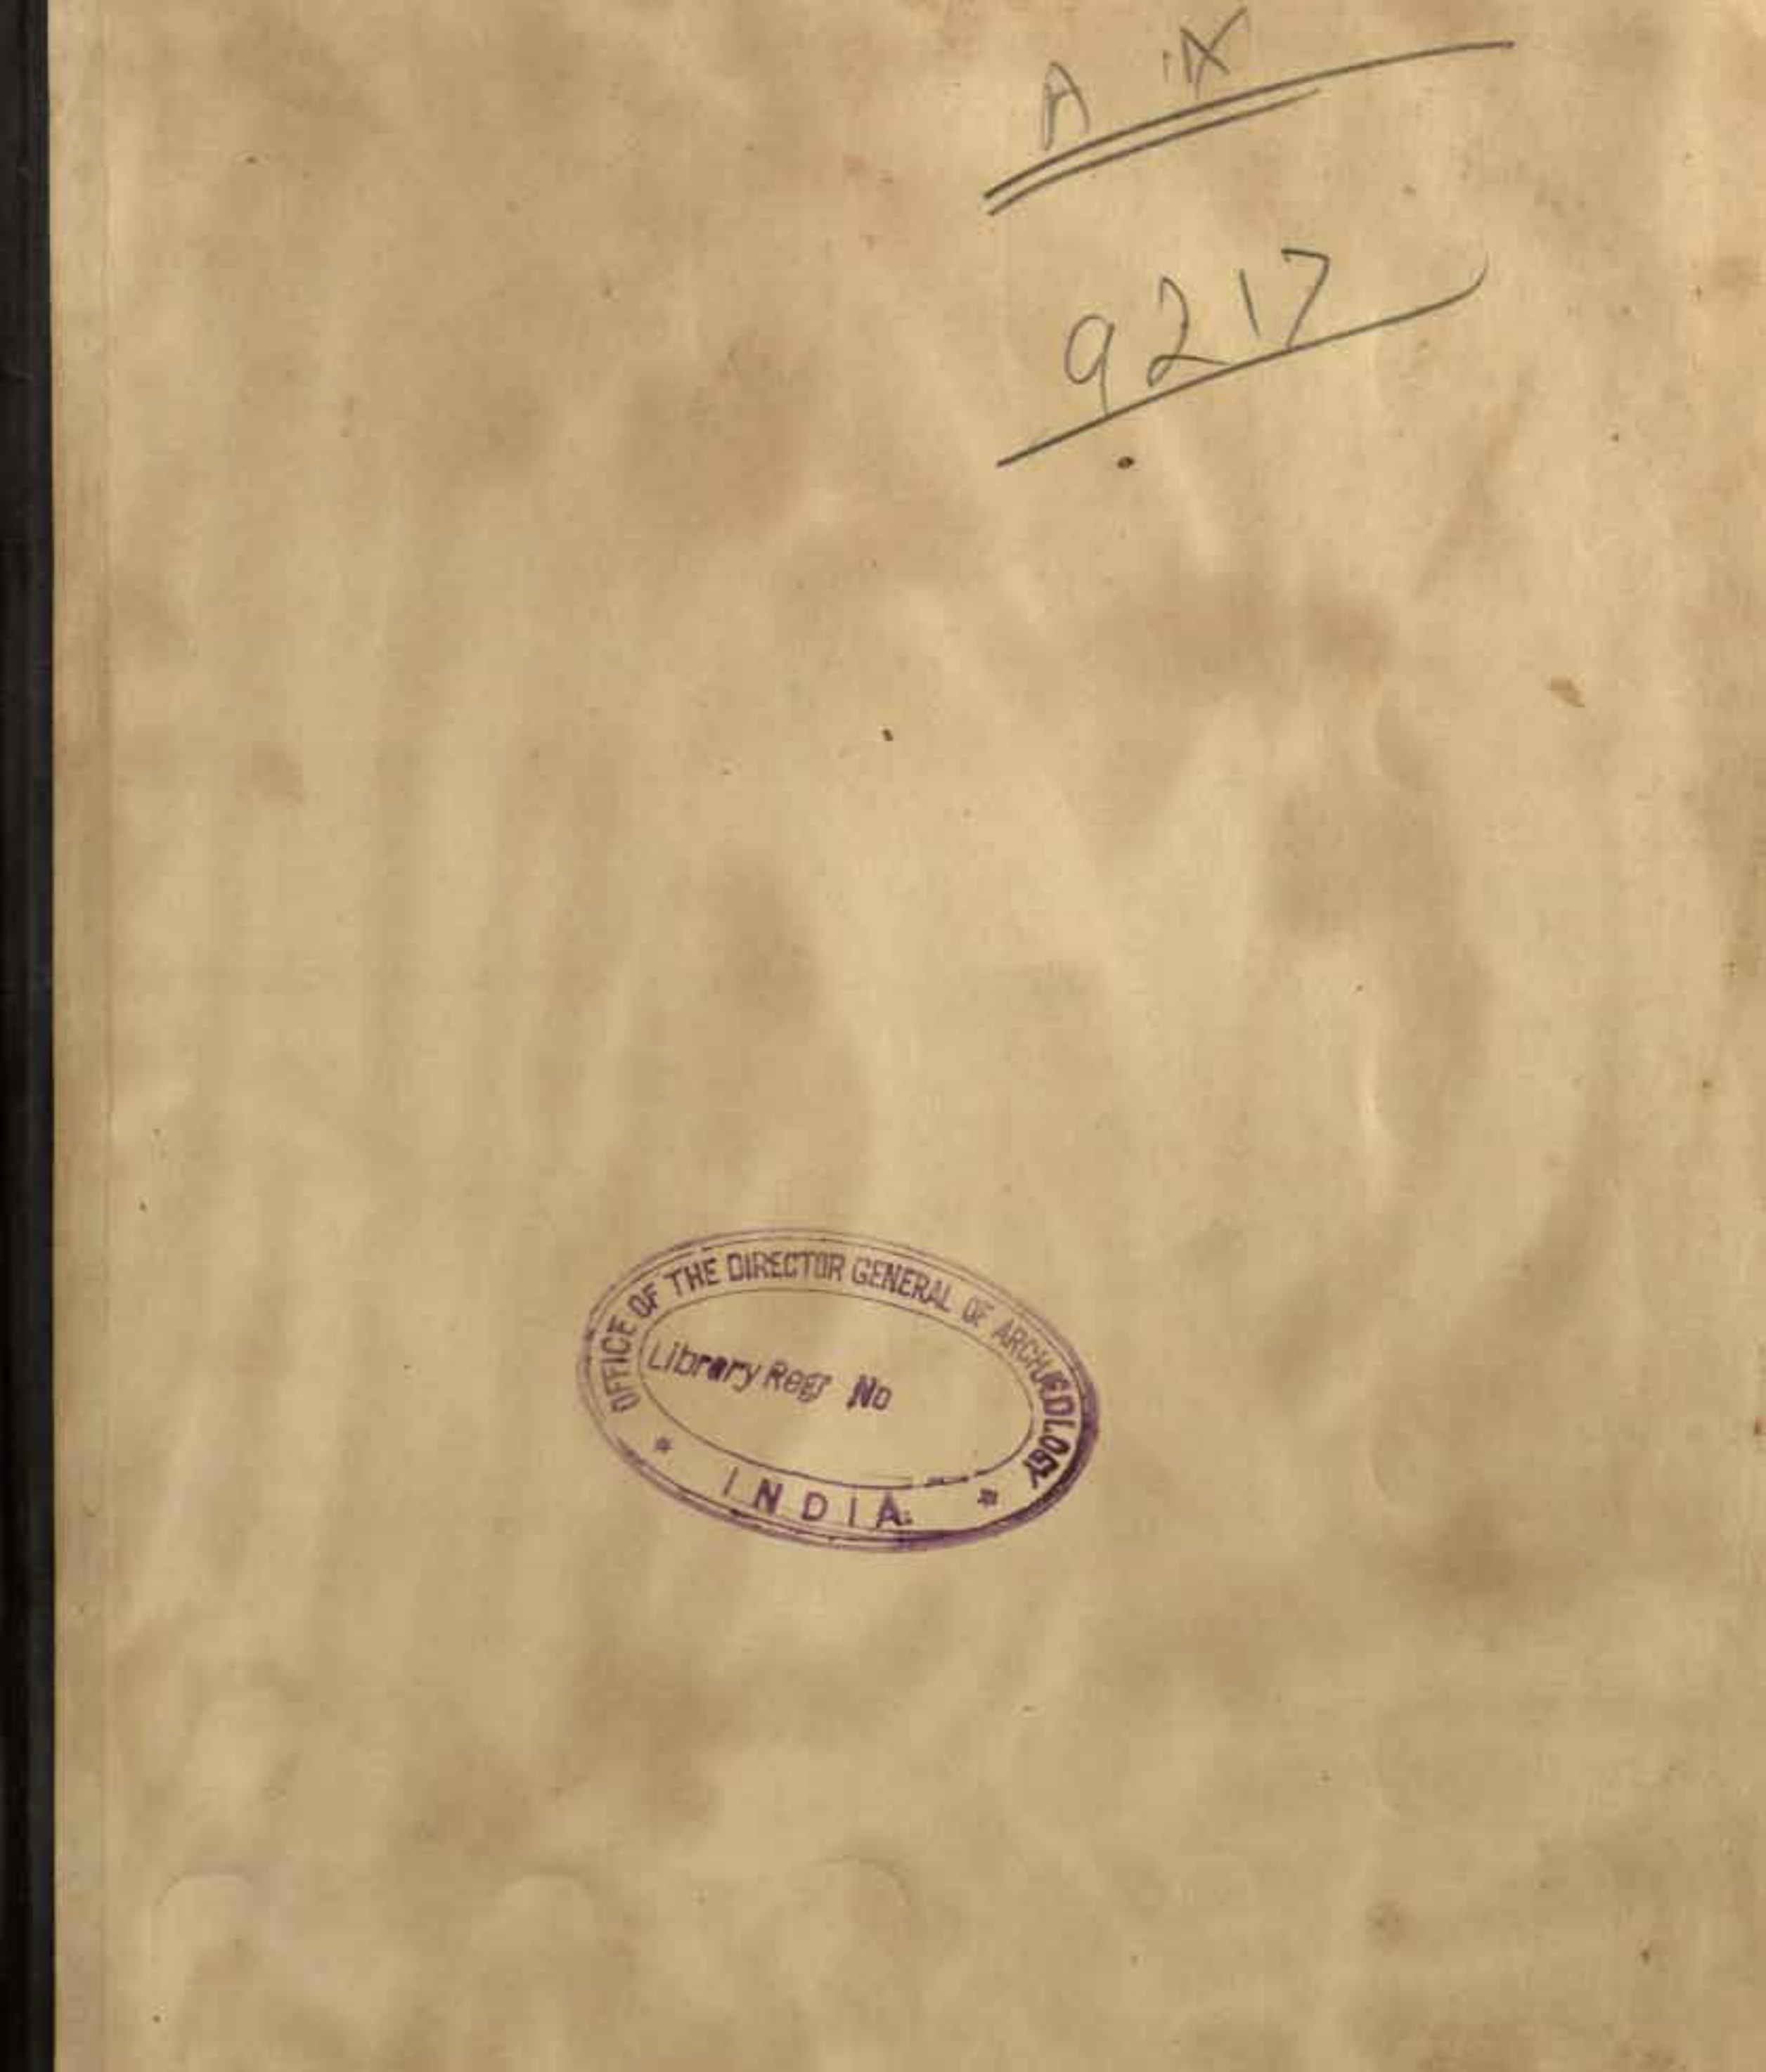 A IX
9217
OFFICE OF THE DIRECTOR GENERAL OF ARCHÆOLOGY
Library Regr No
* INDIA. *